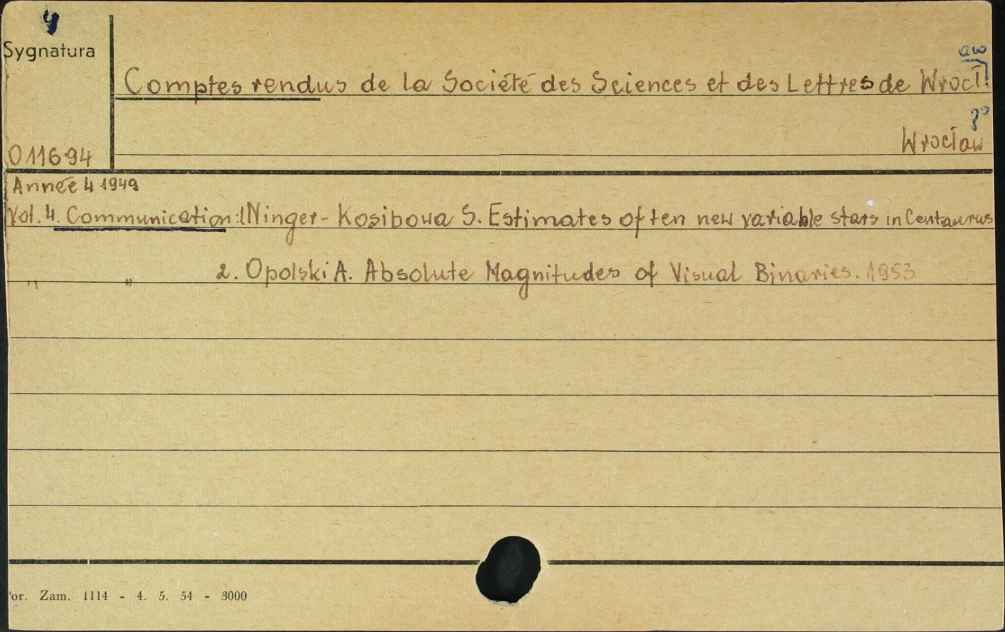 4
Sygnatura
aw
Comptes rendus de la Société des Sciences et des Lettres de Wrocł
Wrocław
011694
Année 4 1949
Vol. 4. Communication: 1 Ninger-Kosibowa S. Estimates of ten new variable stars in Centaurus
" " 2. Opolski A. Absolute Magnitudes of Visual Binaries. 1953
or. Zam. 1114 - 4. 5. 54 - 3000